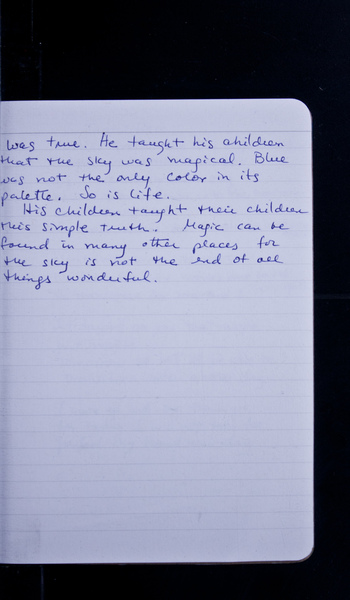 was true. He taught his children
that the sky was magical. Blue
was not the only color in its
palette. So is life.
His children taught their children
this simple truth. Magic can be
found in many other places for
the sky is not the end of all
things wonderful.